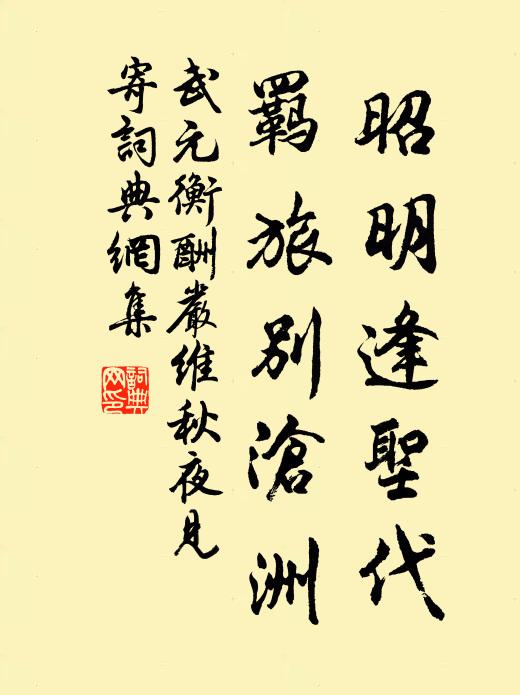 昭明逢聖代
羈旅別滄洲
武元衡酬嚴維秋夜見
寄詞典網集
詞典網印